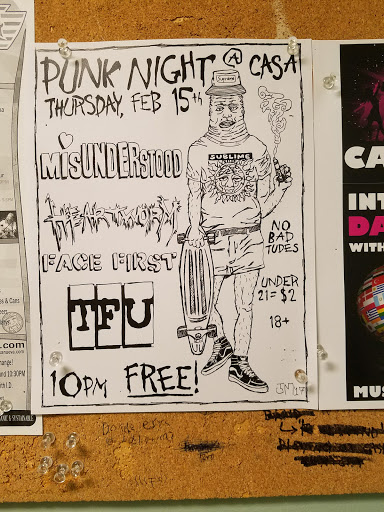 PUNK NIGHT @ CASA
THURSDAY, FEB 15th
MISUNDERSTOOD
HEARTWORM
FACE FIRST
TFU
10PM FREE!
SUBLIME
NO
BAD
TUDES
UNDER
21=$2
18+
CA
INT
DA
WITH
MUS